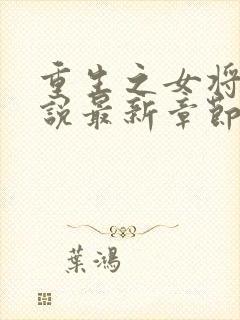 重生之女将
說最新章節
葉鴻